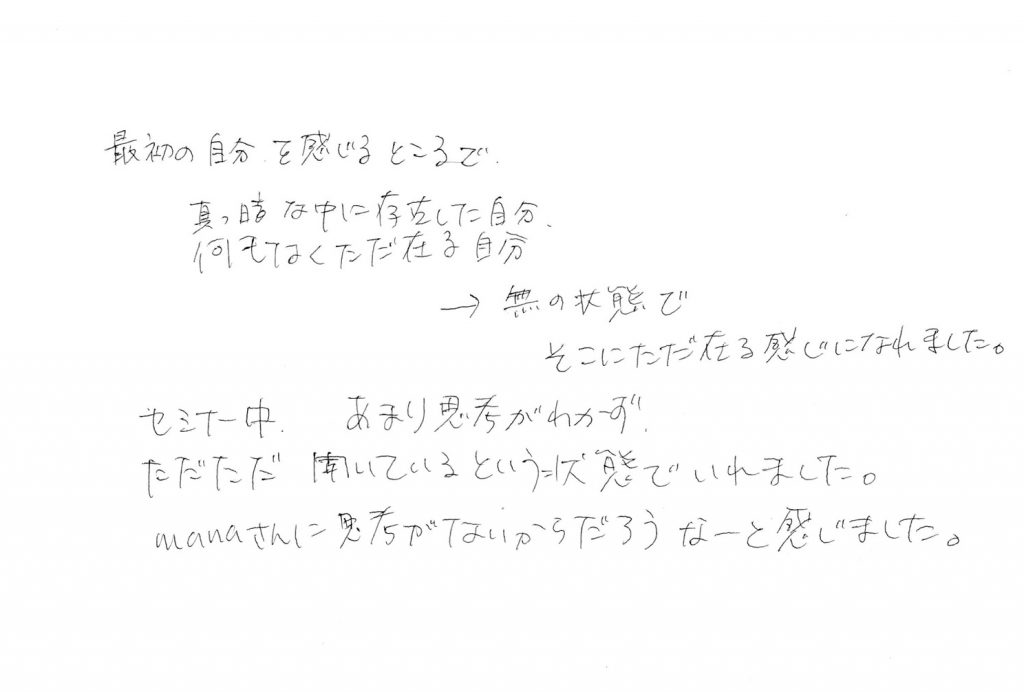 最初の自分を感じるところで、
真っ暗な中に存在した自分、
何もなくただ在る自分
→ 無の状態で
そこにただ在る感じになれました。
セミナー中、あまり思考がわかず、
ただただ聞いているという状態でいれました。
manaさんに思考がないからだろうなーと感じました。